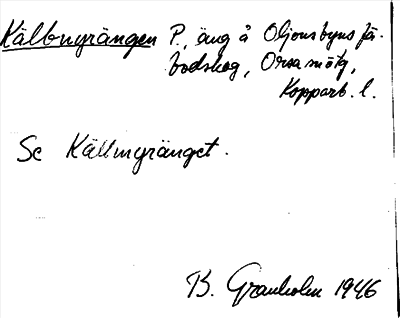 Källmyrängen P., äng å Oljonsbyns fä-
bodskog, Orsa snötg,
Kopparb. l.
Se Källmyränget.
B. Granholm 1946